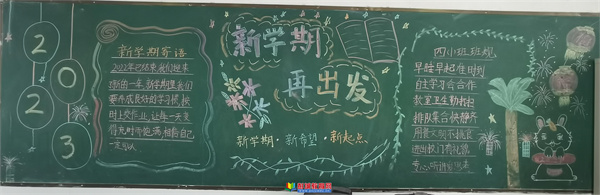 2
0
2
3
新学期寄语
2022年已结束我们迎来
新的一年,新学期望我们
要养成良好的学习习惯,按
时上交作业,让每一天变
得充
新学期
再出发
新学期·新希望·新起点
四小班班规
早睡早起准时到
自主学习会合作
教室卫生勤打扫
排队集合快静齐
用餐文明不挑食
进出校门有礼貌
专心听讲